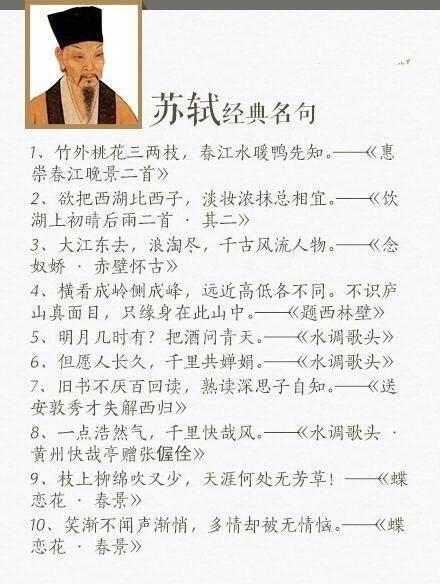 苏轼经典名句
1、竹外桃花三两枝，春江水暖鸭先知。——《惠
崇春江晚景二首》
2、欲把西湖比西子，淡妆浓抹总相宜。——《饮
湖上初晴后雨二首 · 其二》
3、大江东去，浪淘尽，千古风流人物。——《念
奴娇 · 赤壁怀古》
4、横看成岭侧成峰，远近高低各不同。不识庐
山真面目，只缘身在此山中。——《题西林壁》
5、明月几时有？把酒问青天。——《水调歌头》
6、但愿人长久，千里共婵娟。——《水调歌头》
7、旧书不厌百回读，熟读深思子自知。——《送
安敦秀才失解西归》
8、一点浩然气，千里快哉风。——《水调歌头 ·
黄州快哉亭赠张偓佺》
9、枝上柳绵吹又少，天涯何处无芳草！——《蝶
恋花 · 春景》
10、笑渐不闻声渐悄，多情却被无情恼。——《蝶
恋花 · 春景》